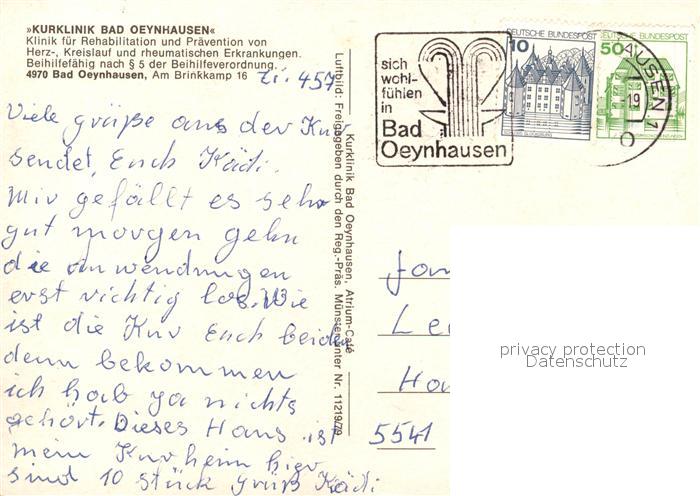 »KURKLINIK BAD OEYNHAUSEN«
Klinik für Rehabilitation und Prävention von
Herz-, Kreislauf und rheumatischen Erkrankungen.
Beihilfefähig nach § 5 der Beihilfeverordnung.
4970 Bad Oeynhausen, Am Brinkkamp 16
Zi. 457
Viele grüße aus der Kur
sendet, Euch Kädi.
Mir gefällt es sehr
gut morgen gehn
die anwendungen
erst richtig los. Wie
ist die Kur Euch beiden
denn bekommen
ich hab ja nichts
gehört. Dieses Haus ist
mein Kurheim hier
sind 10 stück gruß Kädi
Kurklinik Bad Oeynhausen, Atrium-Café
Luftbild: Freigegeben durch den Reg.-Präs. Münster unter Nr. 11219/79
sich
wohl-
fühlen
in
Bad
Oeynhausen
DEUTSCHE BUNDESPOST
10
DEUTSCHE BUNDESPOST
50
AUSEN 1
-19
Le
5541
privacy protection
Datenschutz